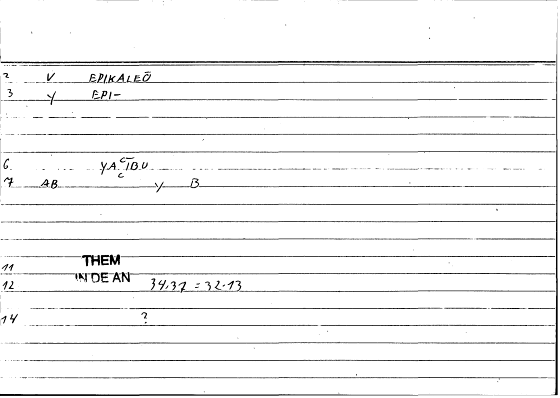 2 V EPIKALEŌ
3 Y EPI-
6 YAC̄IBU
7 AB Y B
11 THEM
12 IN DE AN 34.37 = 32.13
14 ?